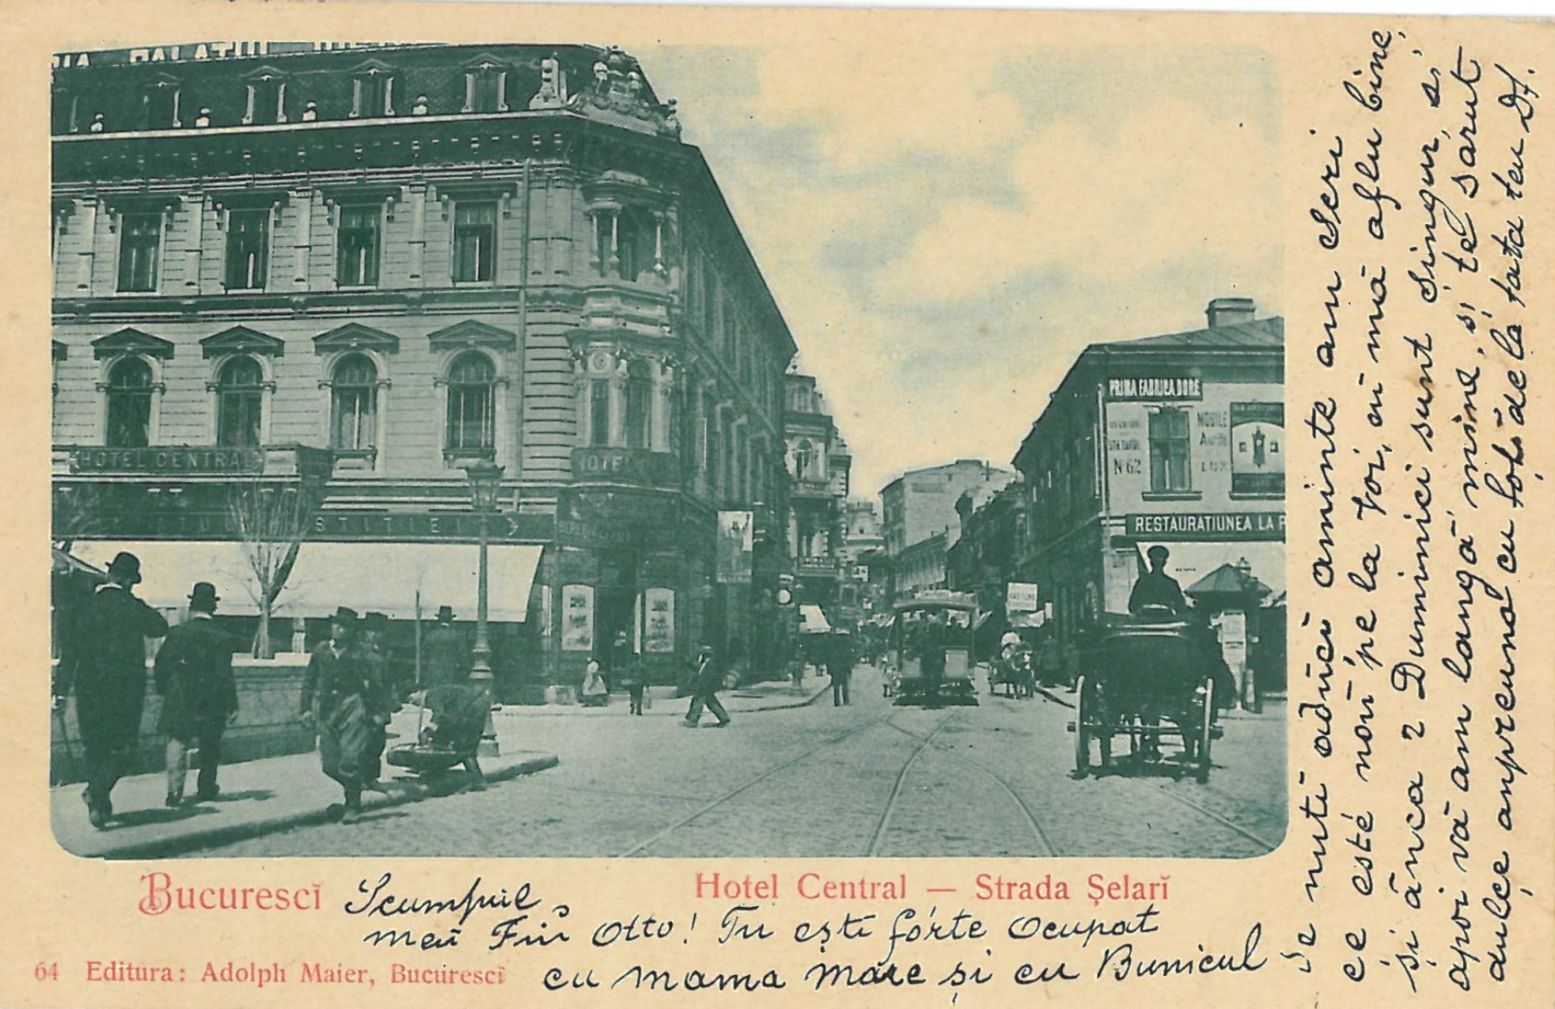 PALATUL
HOTEL CENTRAL
HOTEL
PRIMA FABRICA DORE
MOBILE
N 62
RESTAURATIUNEA LA
Bucurescĭ
Hotel Central — Strada Şelarĭ
64 Editura: Adolph Maier, Bucurescĭ
Scumpul
meŭ Fiŭ Otto! Tu ești fórte Ocupat
cu mama Mare și cu Bunicul
Te nuti aduci aminte au Seri
ce esté noŭ pe la Voi, eŭ mă aflu bine,
și ânca 2 Duminici sunt Singur, si
apoi vă am langă mine, si te sarut
dulçe anpreună cu toți de la tata teu